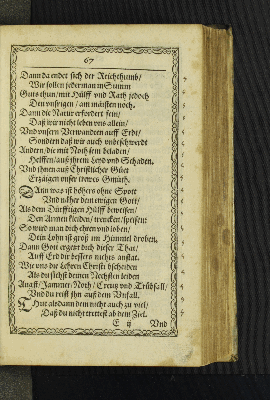 67
Dann da endet sich der Reichthumb/
Wir sollen jederman in Summ
Guts thun/mit Hülff und Rath jedoch
Den unsrigen/am maisten noch.
Dann die Natur erfordert sein/
Daß wir nicht leben uns allein/
Und unsern Verwandten auff Erd/
Sondern daß wir auch unbeschwerdt
Andern/die mit Noth sein beladen/
Helffen/auß ihrem Leyd und Schaden.
Und ihnen auß Christlicher Güet
Erzaigen unser trewes Gmüth.
Dann was ist bessers ohne Spott
Und näher dem ewigen Gott/
Als dem Dürfftigen Hülff beweisen/
Den Armen kleiden/trencken/speisen:
So wird man dich ehren und loben/
Dein Lohn ist groß im Himmel droben.
Dann Gott ergetzt dich dieser That/
Auff Erd dir bessers nichts anstat.
Wie uns die Lehren Christi bscheiden
Als du siehst deinen Nechsten leiden
Angst/Jammer/Noth/Creutz und Trübsall/
Und du reist ihn auß dem Unfall.
Thut als dann dem nicht auch zu viel/
Daß du nicht trettest ab dem Ziel.
E ij
Und